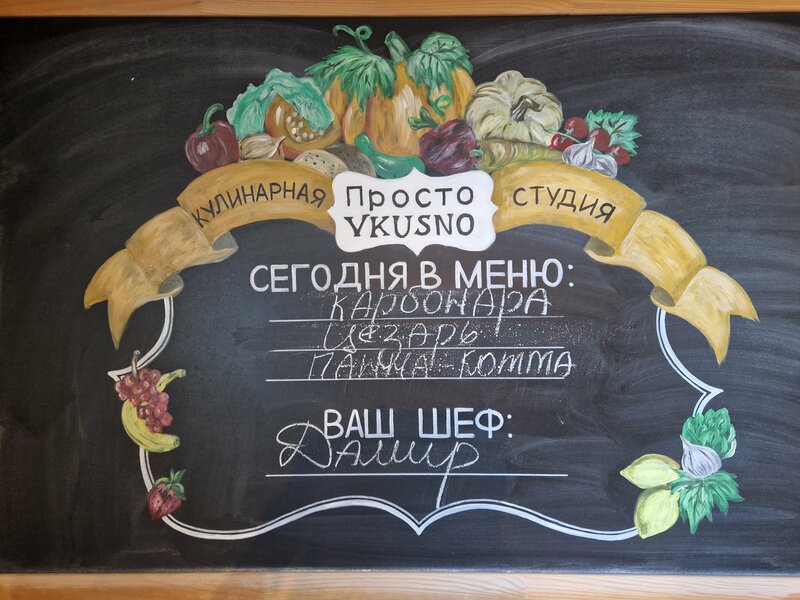 КУЛИНАРНАЯ
Просто
VKUSNO
СТУДИЯ
СЕГОДНЯ В МЕНЮ:
КАРБОНАРА
ЦЕЗАРЬ
ПАННА-КОТТА
ВАШ ШЕФ:
Дамир